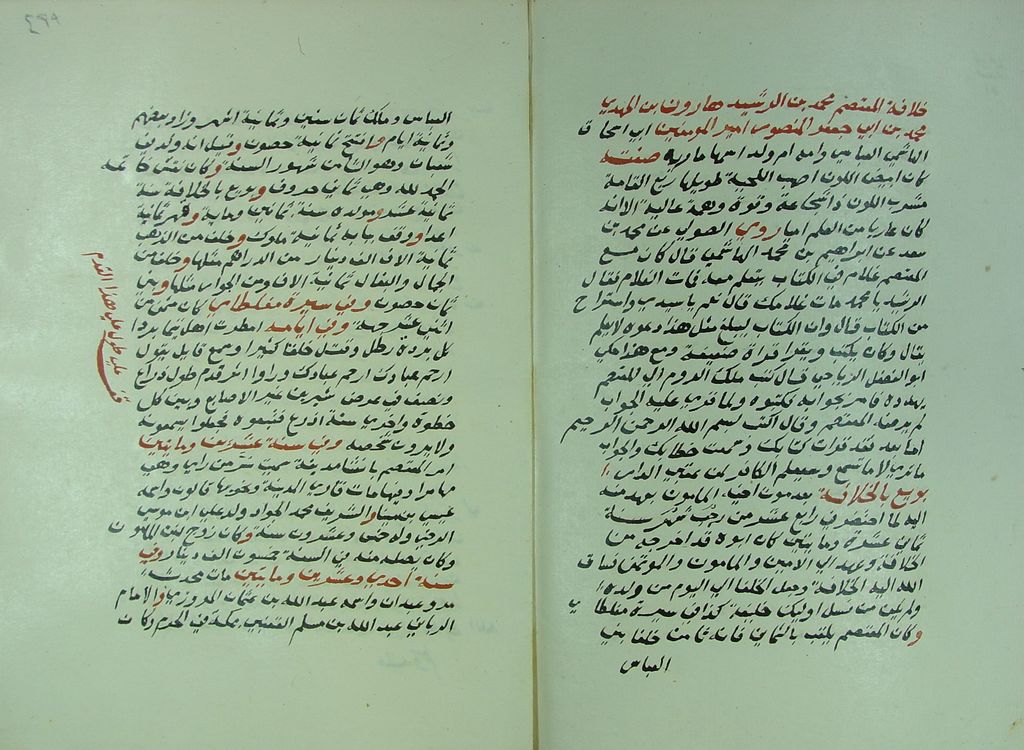 خلافة المعتصم محمد بن الرشيد هارون بن المهدي
محمد بن ابي جعفر المنصور امير المومنين ابي اسحاق
الهاشمي العباسي وامه ام ولد اسمها ماردة صفته
كان ابيض اللون اصهب اللحية طويلها ربع القامة
مشرب اللون ذا شجاعة وقوة وهمة عالية الا انه
كان عاريا من العلم اميا روي الصولي عن محمد بن
سعد عن ابراهيم بن محمد الهاشمي قال كان مع
المعتصم غلام في الكتاب يتعلم معه فمات الغلام فقال
الرشيد يا محمد مات غلامك قال نعم يا سيدي واستراح
من الكتاب قال وان الكتاب ليبلغ مثل هذا دعوه لا يعلم
يقال وكان يكتب ويقرا قراة ضعيفة ومع هذا حكي
ابو الفضل الرياحي قال كتب ملك الروم الي المعتصم
يهدده فامر بجوابه فكتبوه ولما قري عليه الجواب
لم يرضه المعتصم وقال اكتب بسم الله الرحمن الرحيم
اما بعد فقد قرات كتابك وسمعت خطابك والجواب
ما تري لا ما تسمع وسيعلم الكافر لمن عقبي الدار
بويع بالخلافة بعد موت اخيه المامون بعهد منه
اليه لما احتضر في رابع عشر من رجب شهر سنة
ثماني عشرة ومايتين كان ابوه قد اخرجه من
الخلافة وعهد الي الامين والمامون والموتمن فساق
الله اليه الخلافة وجعل الخلفا الي اليوم من ولده
ولم يكن من نسل اوليك خليفة كذا في سيرة مغلطاي
وكان المعتصم يلقب بالثماني فانه ثامن خلفا بني
العباس
العباس وملك ثمان سنين وثمانية اشهر وزاد بعضهم
وثمانية ايام وافتتح ثمانية حصون وقيل انه ولد في
شعبان وهو الثامن من شهور السنة وكان نقش خاتمه
الحمد لله وهي ثماني حروف وبويع بالخلافة سنة
ثمانية عشر ومولده سنة ثمانين وماية وقهر ثمانية
اعدا ووقف ببابه ثمانية ملوك وخلف من الذهب
ثمانية الاف الف دينار من الدراهم مثلها وخلف من
الجمال والبغال ثمانية الاف ومن الجوار مثلها وبني
ثمان حصون وفي سيرة مغلطاي كان ثمن من
اثني عشر جهة وفي ايامه امطرت اهل تيما بردا
كل بردة رطل وقتل خلقا كثيرا وسمع قايل يقول
ارحم عبادك ارحم عبادك وراوا اثر قدم طول ذراع
ونصف في عرض شبرين غير الاصابع وبين كل
خطوة واخري ستة اذرع فتبعوه فجعلوا يسمعونه
ولا يرون شخصه وفي سنة عشرين ومايتين
امر المعتصم بانشا مدينة سميت سر من راي وهي
سامرا وفيها مات قاري المدينة ونحويها قالون واسمه
عيسي بن مينا والشريف محمد الجواد ولد علي ابن موسي
الرضي وله خمس وعشرون سنة وكان زوج بنت المامون
وكان يصله منه في السنة خمسون الف دينار وفي
سنة احدي وعشرين ومايتين مات محدث
مرو عبدان واسمه عبد الله بن عثمان المروزي والامام
الرباني عبد الله بن مسلم القعنبي بمكة في المحرم وكان
قف علي طول علي هذا القدم